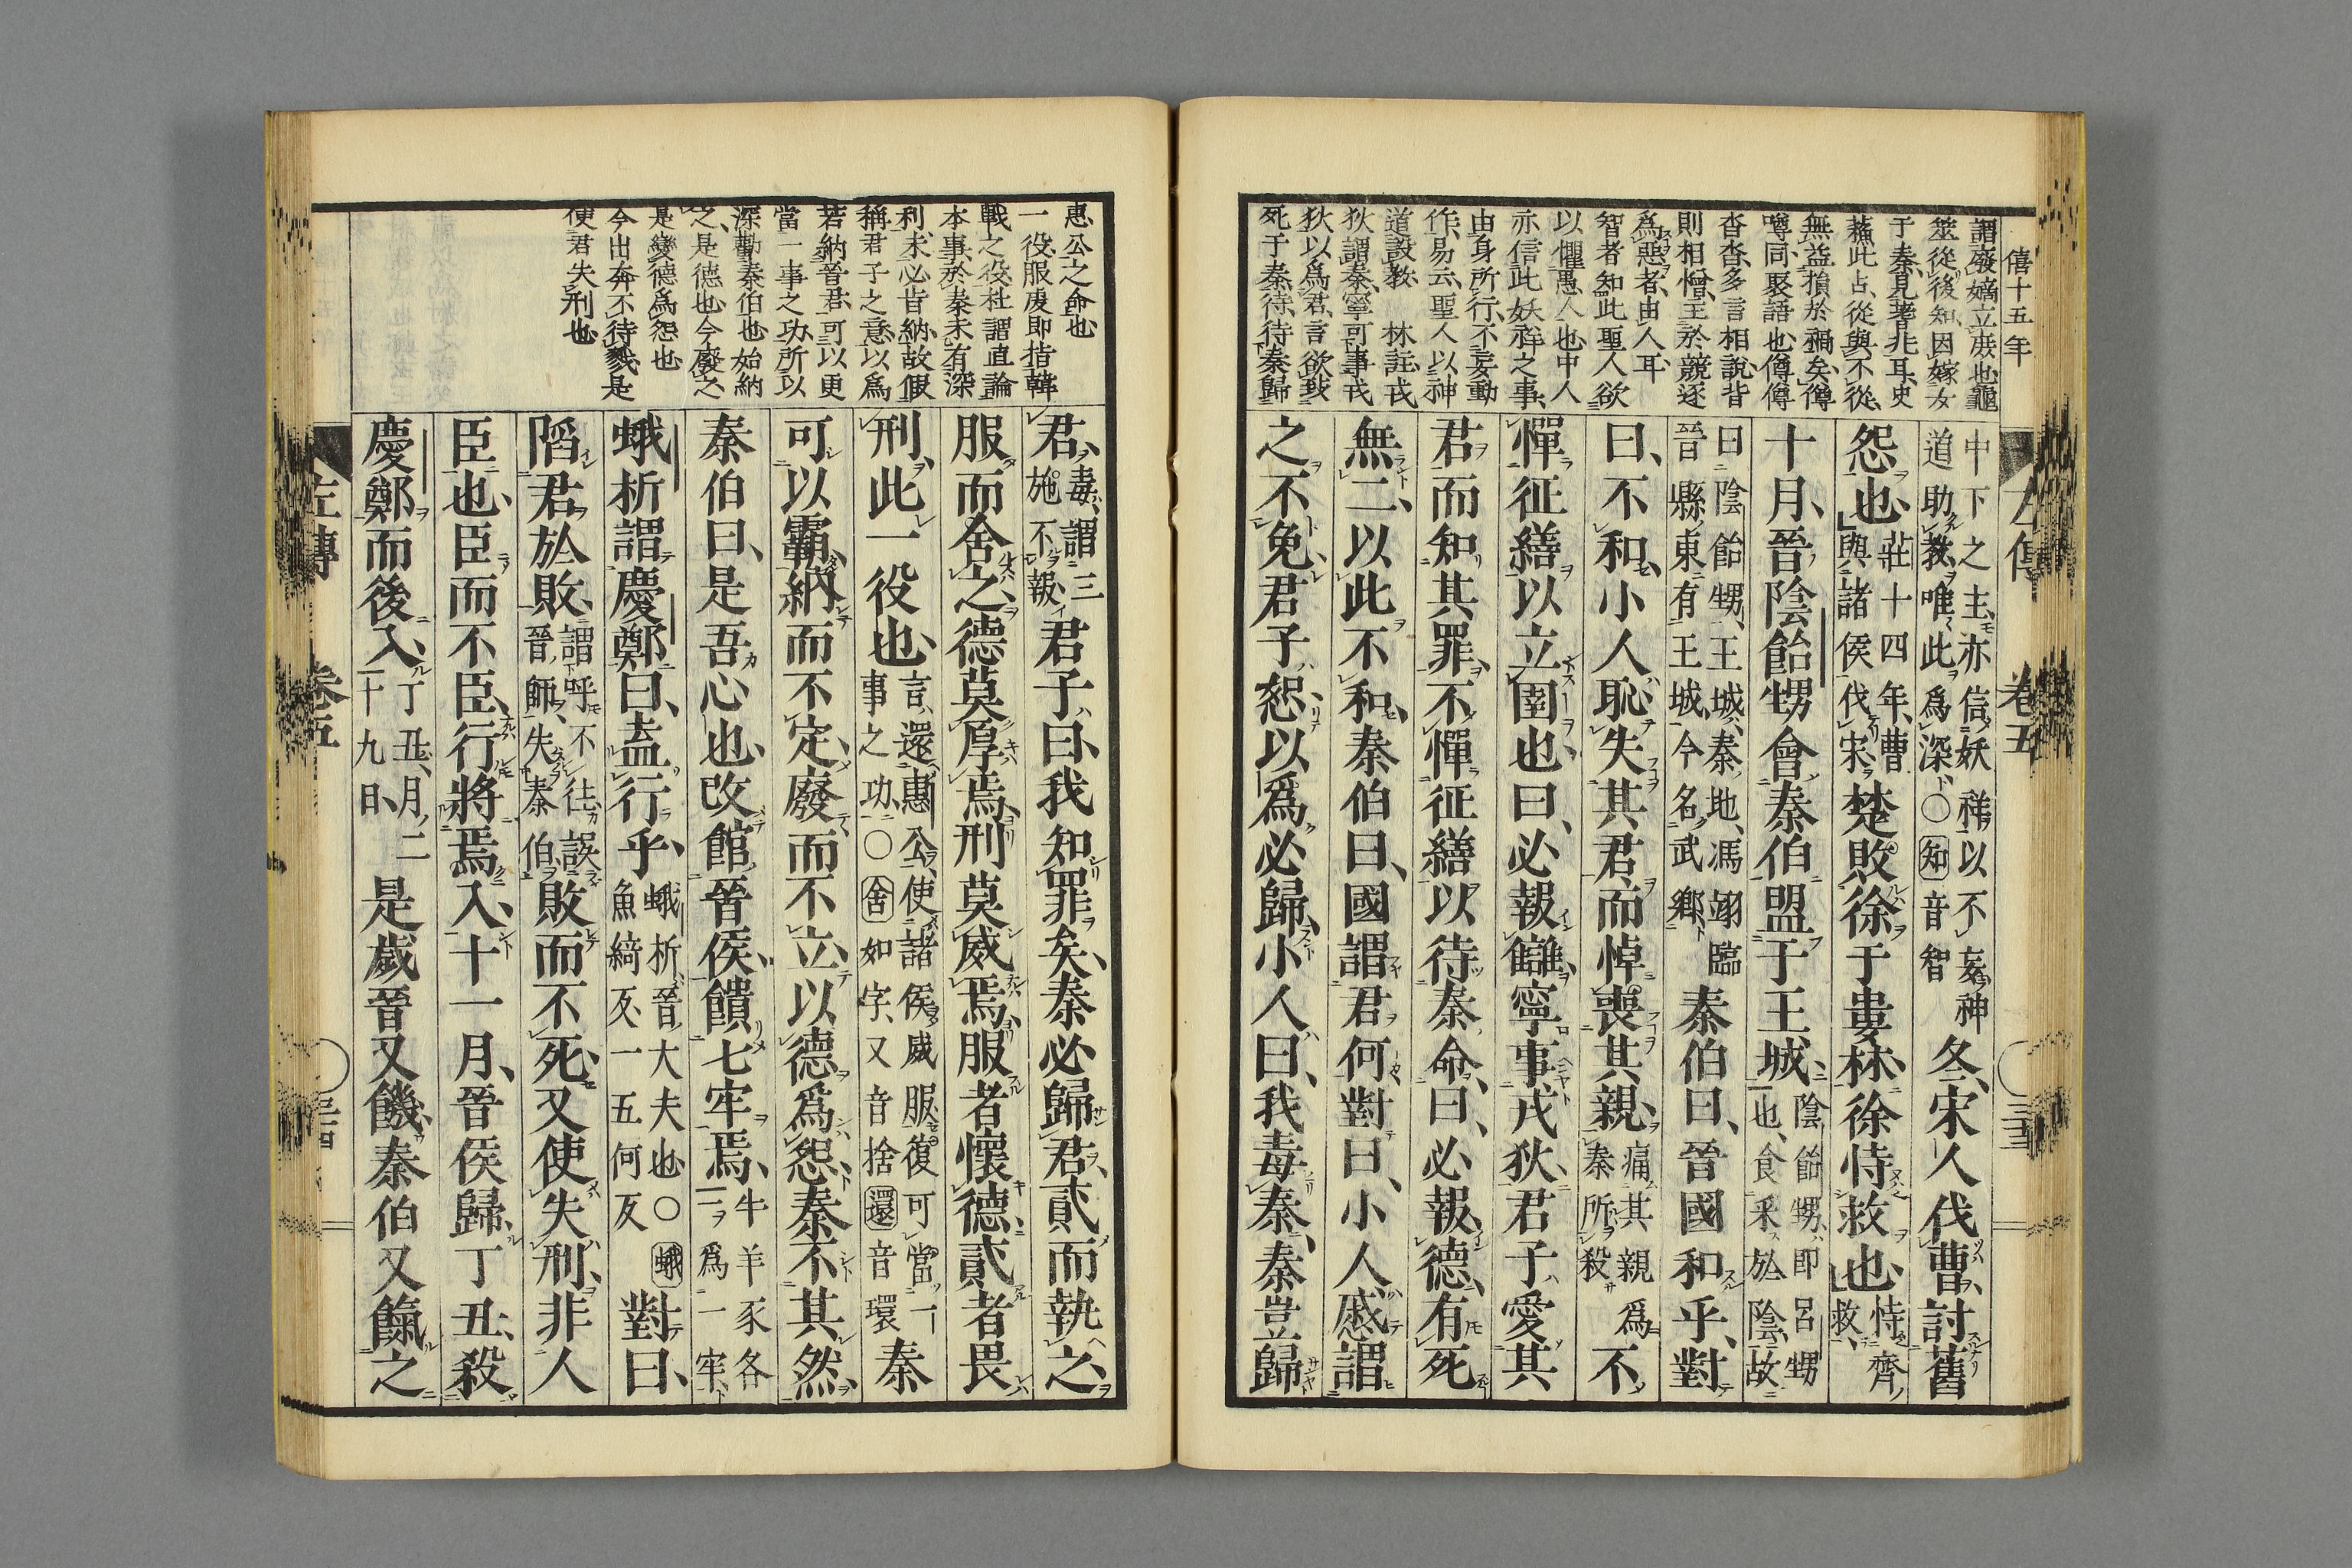 僖十五年
謂廢嫡立庶也龜
筮從後知因嫁女
于秦見著非耳史
蘓此占從與不從
無益損於禍矣僔
噂同聚語也僔僔
沓沓多言相說背
則相憎主於競逐
爲惡者由人耳
智者知此聖人欲
以懼愚人也中人
亦信此妖祥之事
由身所行不妄動
作易云聖人以神
道設教 林註戎
狄謂秦寧可事戎
狄以爲君言欲致
死于秦待待秦歸
左傳 卷五
中下之主亦信妖祥以不妄神
道助教唯此爲深○知音智
冬宋人伐曹討舊
怨也
莊十四年曹
與諸侯伐宋
楚敗徐于婁林徐恃救也
恃齊
救
十月晉陰飴甥會秦伯盟于王城
陰飴甥即呂甥
也食采於陰故
曰陰飴甥王城秦地馮翊臨
晉縣東有王城今名武鄉
秦伯曰晉國和乎對
曰不和小人恥失其君而悼喪其親
痛其親爲
秦所殺
不
憚征繕以立圉也曰必報讎寧事戎狄君子愛其
君而知其罪不憚征繕以待秦命曰必報德有死
無二以此不和秦伯曰國謂君何對曰小人慼謂
之不免君子恕以爲必歸小人曰我毒秦秦豈歸
惠公之命也
一役服虔即指韓
戰之役杜謂直論
本事於秦未有深
利未必皆納故假
稱君子之意以爲
若納晉君可以更
當一事之功所以
深勸秦伯也始納
之是德也今廢之
是變德爲怨也
今出奔不待戮是
使君失刑也
君
毒謂三
施不報
君子曰我知罪矣秦必歸君貳而執之
服而舍之德莫厚焉刑莫威焉服者懷德貳者畏
刑此一役也
言還惠公使諸侯威服復可當一
事之功○舍如字又音捨還音環
秦
可以霸納而不定廢而不立以德爲怨秦不其然
秦伯曰是吾心也改館晉侯饋七牢焉
牛羊豕各
一爲一牢
蛾析謂慶鄭曰盍行乎
蛾析晉大夫也○蛾
魚綺反一五何反
對曰
陷君於敗
謂呼不往誤
晉師失秦伯
敗而不死又使失刑非人
臣也臣而不臣行將焉入十一月晉侯歸丁丑殺
慶鄭而後入
丁丑月二
十九日
是歲晉又饑秦伯又餼之
左傳 卷五